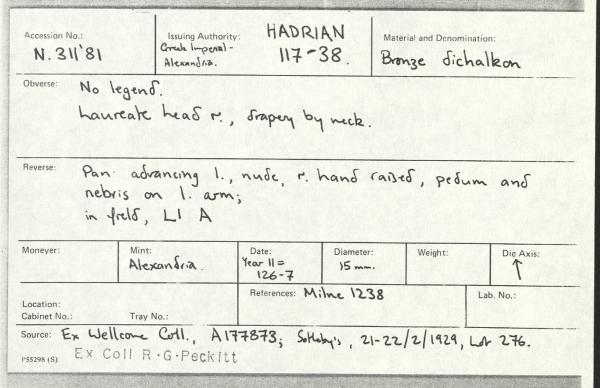 Accession No.:
N. 311'81
Issuing Authority:
Greek Imperial -
Alexandria.
HADRIAN
117-38.
Material and Denomination:
Bronze dichalkon
Obverse:
No legend.
Laureate head r., drapery by neck.
Reverse:
Pan advancing l., nude, r. hand raised, pedum and
nebris on l. arm;
in field, LI A
Moneyer:
Mint:
Alexandria.
Date:
Year 11 =
126-7
Diameter:
15 mm.
Weight:
Die Axis:
↑
Location:
Cabinet No.:
Tray No.:
References: Milne 1238
Lab. No.:
Source: Ex Wellcome Coll., A177873; Sotheby's, 21-22/2/1929, Lot 276.
P55298 (S)
Ex Coll R.G.Peckitt